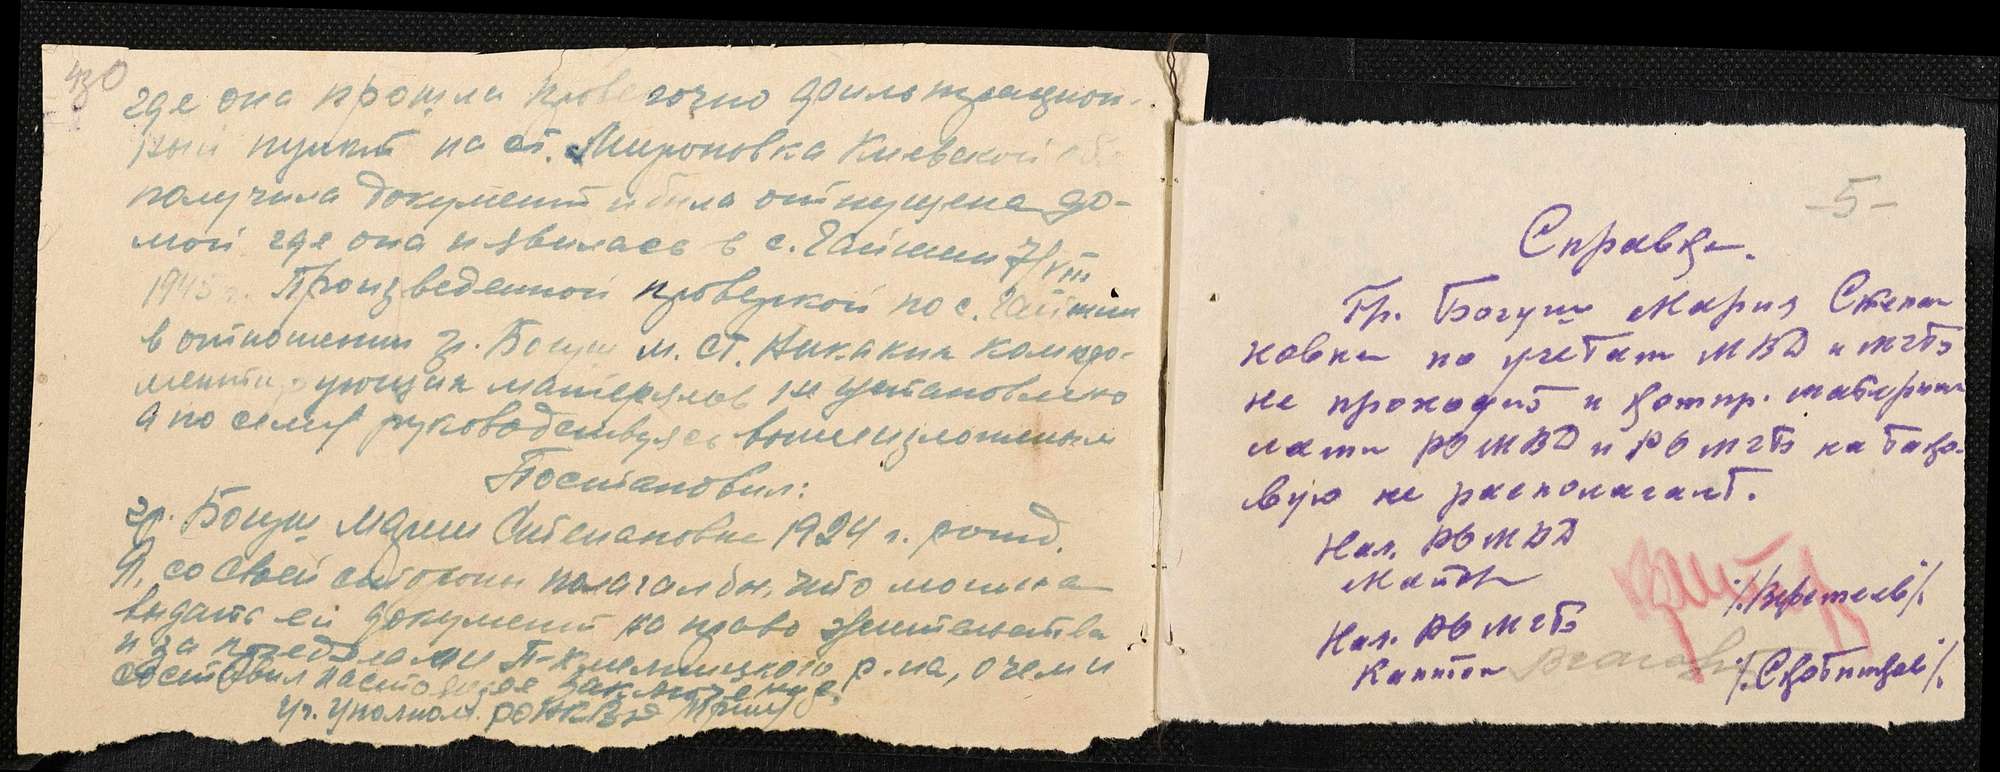 430
где она прошла проверочно фильтрацион-
ный пункт на ст. Мироновка Киевской об.
получила документ и была отпущена до-
мой где она и явилась в с. Гайшин 7/VIII
1945 г. Произведенной проверкой по с. Гайшин
в отношении гр. Богуш М. Ст. Никаких компро-
ментирующих матерялов не установлено
а по сему руководствуясь вышеизложенным
Постановил:
гр. Богуш Марии Степановне 1924 г. рожд.
Я, со своей стороны полагал бы, что можно
выдать ей документ на право жительства
и за пределами П-Хмельницкого р-на, о чем и
составил настоящее заключение.
Уч. Уполном. РОНКВД
-5-
Справка.
Гр. Богуш Мария Степа
новна по учетам МВД и МГБ
не проходит и компр. матерриа
лами РО МВД и РО МГБ на тако-
вую не располагает.
Нач. РО МВД
Майор
Нач. РО МГБ
Капитан